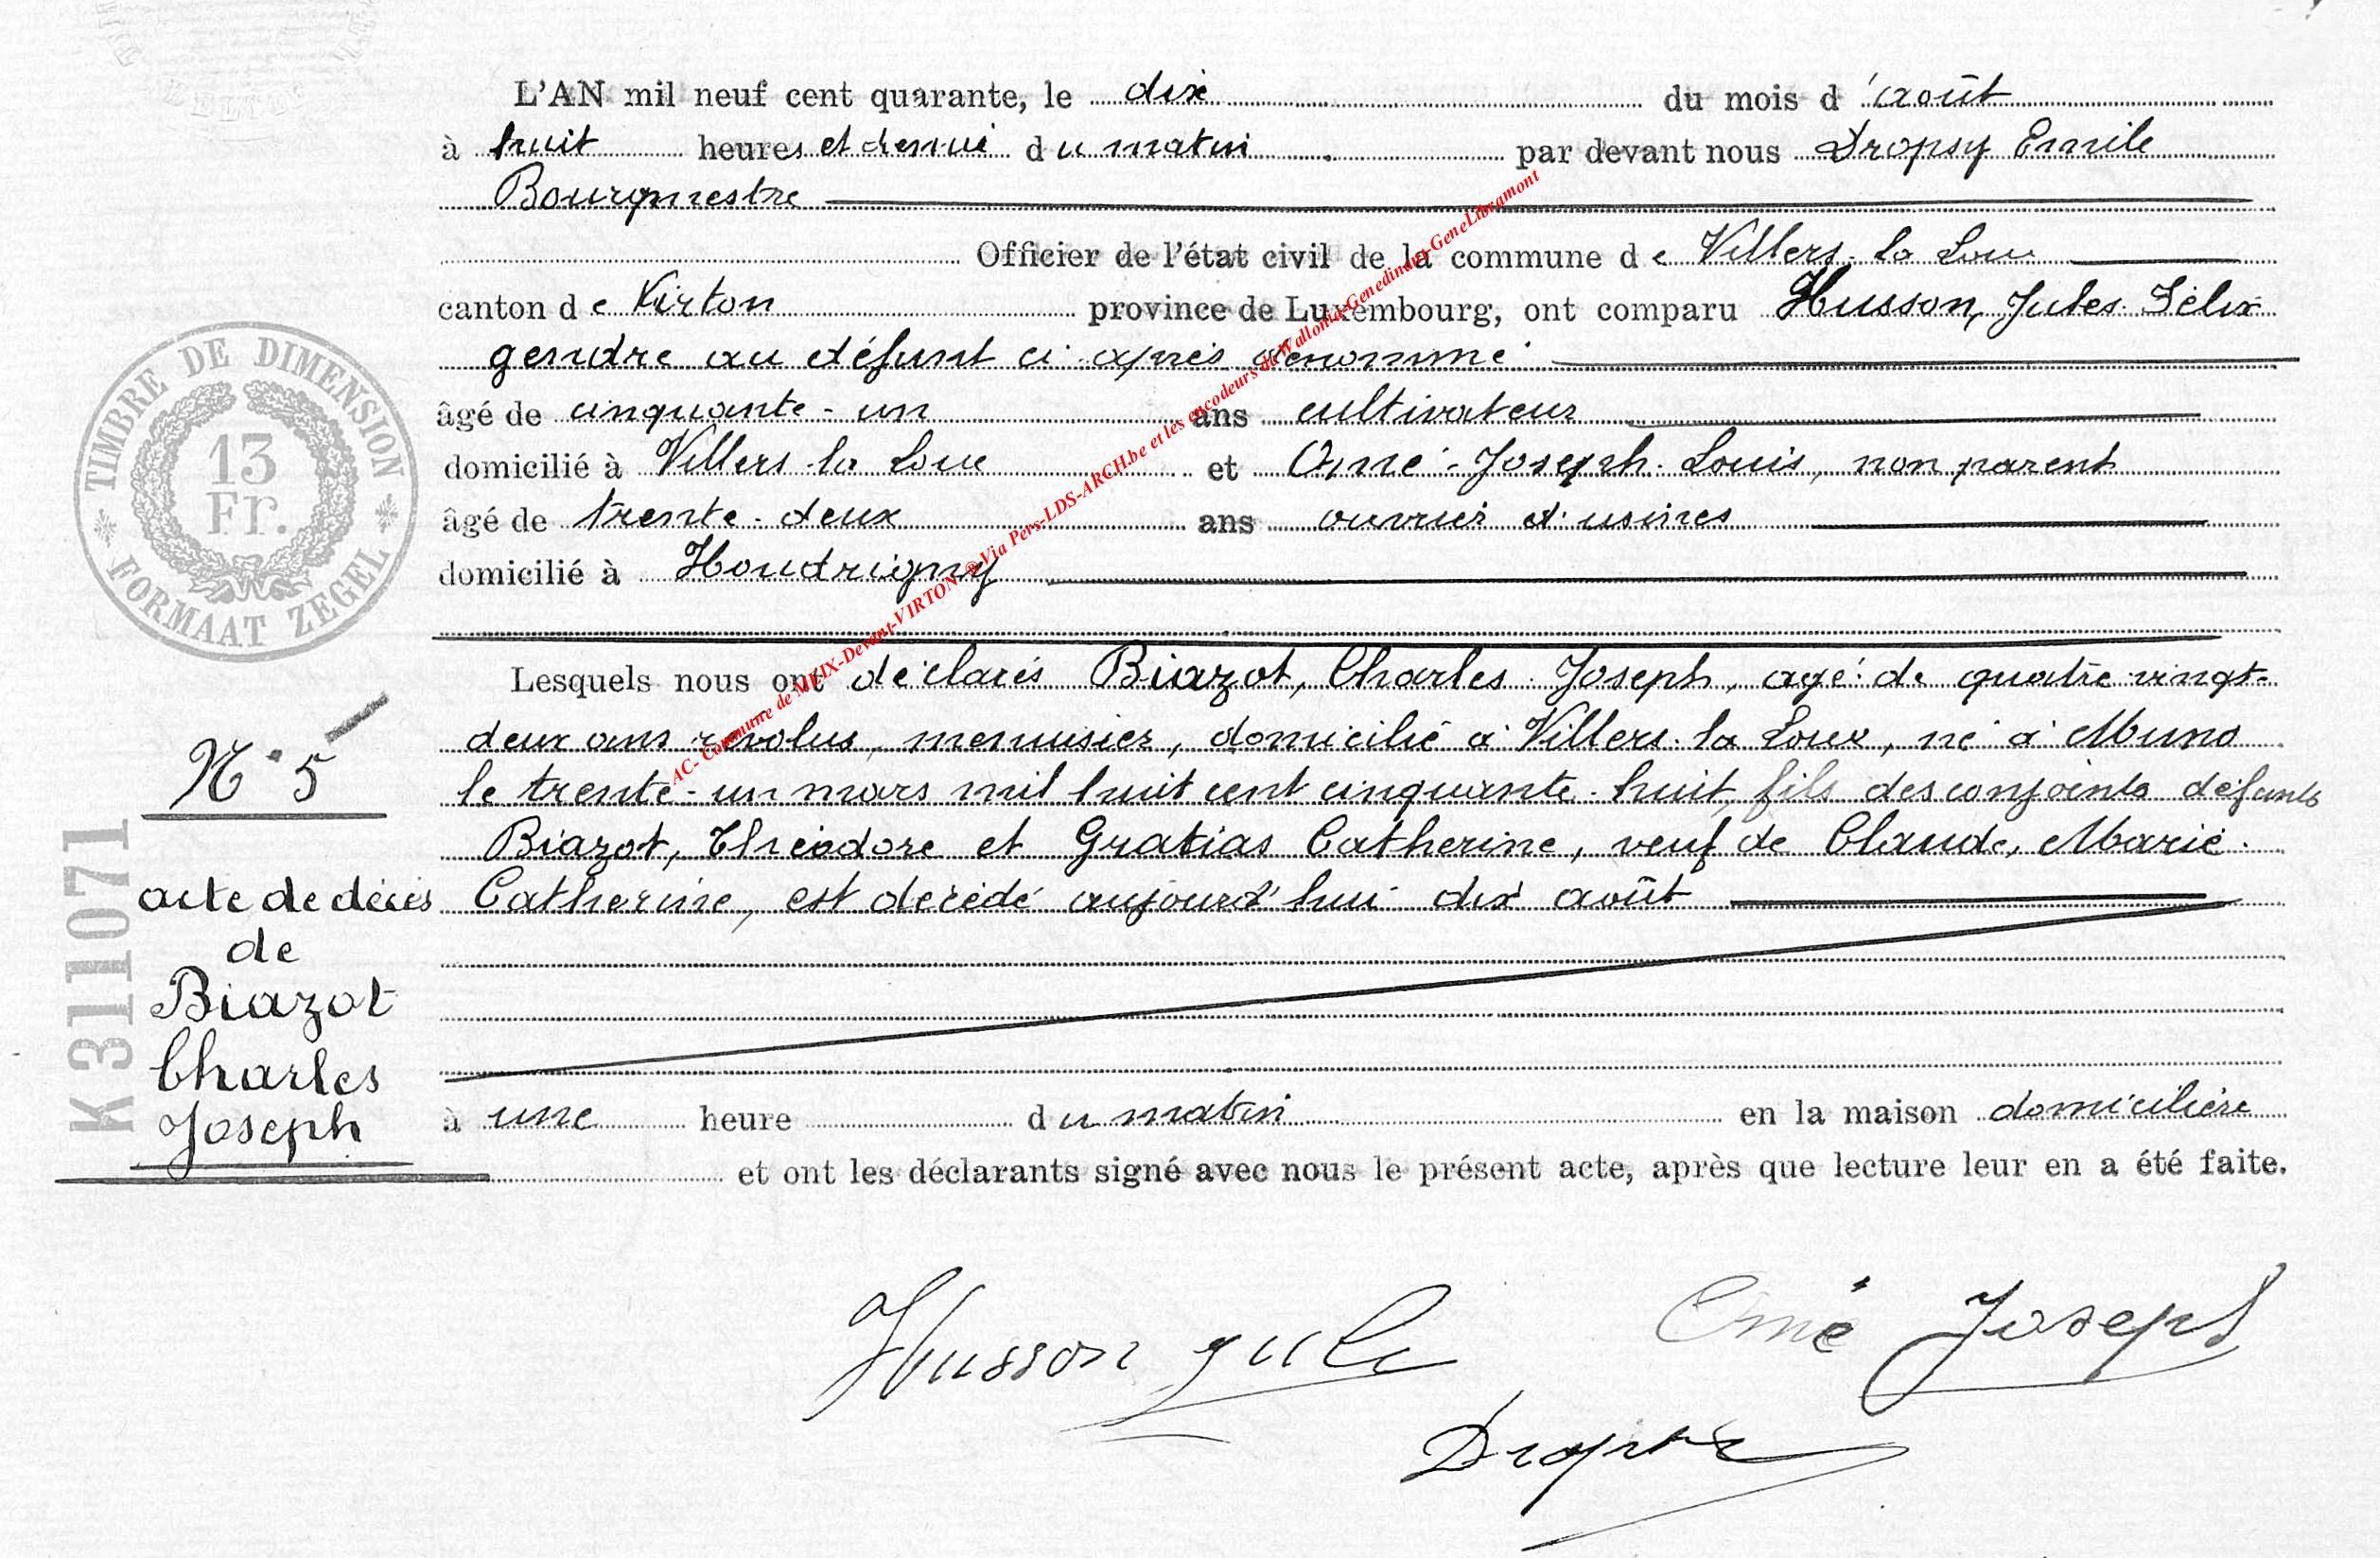 L'AN mil neuf cent quarante, le dix du mois d'août
à huit heures et demie du matin par devant nous Dropsy Emile
Bourgmestre
Officier de l'état civil de la commune de Villers-la-Loue
canton de Virton province de Luxembourg, ont comparu Husson, Jules-Félix
gendre au défunt ci-après dénommé
âgé de cinquante-un ans cultivateur
domicilié à Villers-la-Loue et Omé-Joseph-Louis, non parent
âgé de trente-deux ans ouvrier d'usines
domicilié à Houdrigny
Lesquels nous ont déclarés Biazot, Charles-Joseph, agé de quatre-vingt-
deux ans révolus, menuisier, domicilié à Villers-la-Loue, né à Muno
le trente-un mars mil huit cent cinquante-huit, fils des conjoints défunts
Biazot, Théodore et Gratias Catherine, veuf de Claude, Marie-
Catherine, est décédé aujourd'hui dix août
à une heure du matin en la maison domicilière
et ont les déclarants signé avec nous le présent acte, après que lecture leur en a été faite.
TIMBRE DE DIMENSION
13
Fr.
FORMAAT ZEGEL
N° 5
K 311071
acte de décès
de
Biazot
Charles
Joseph
Husson Jules
Omé Joseph
Dropsy
AC- Commune de MEIX-Devant-VIRTON ®Via Pers-LDS-ARCH.be et les encodeurs de Wallonia-Genedinant-GeneLibramont